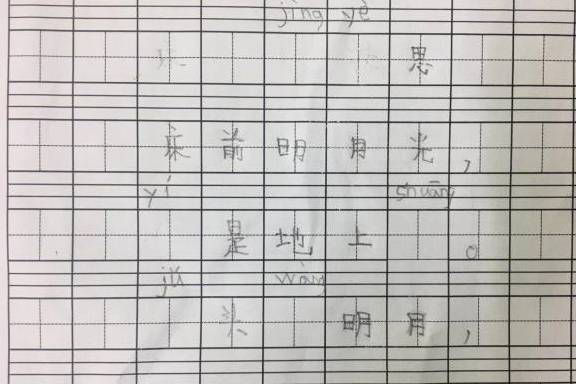 jìng yè
思
床前明月光，
yí shuāng
是地上。
jǔ wàng
头明月，